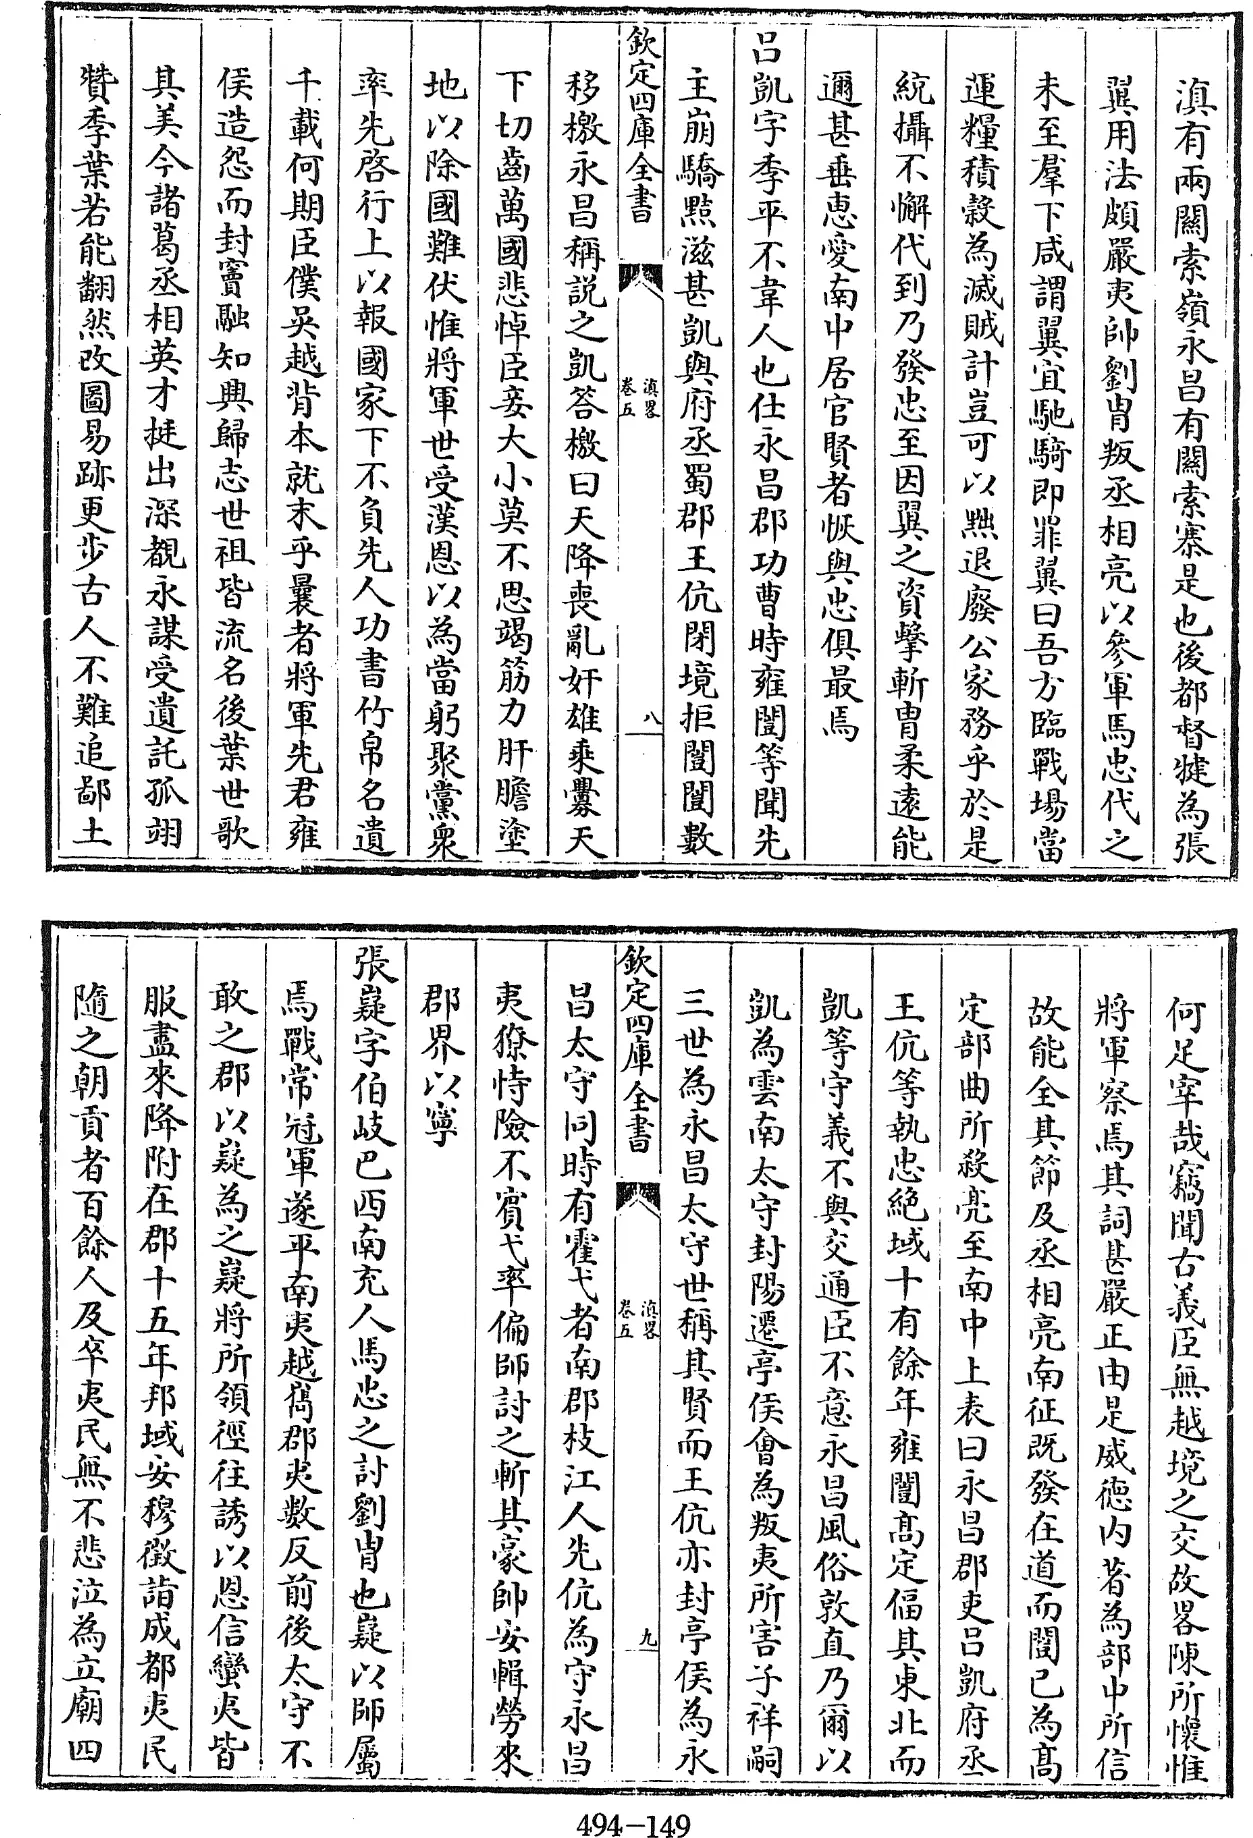 滇有兩關索嶺永昌有關索寨是也後都督㨗為張
翼用法頗嚴夷帥劉胄叛丞相亮以參軍馬忠代之
未至羣下咸謂翼宜馳騎即罪翼曰吾方臨戰場當
運糧積穀為滅賊計豈可以黜退廢公家務乎於是
統攝不懈代到乃發忠至因翼之資擊斬胄柔遠能
邇甚垂惠愛南中居官賢者恢與忠俱最焉
呂凱字季平不韋人也仕永昌郡功曹時雍闓等聞先
主崩驕黠滋甚凱與府丞蜀郡王伉閉境拒闓闓數
欽定四庫全書
滇畧
卷五
八
移檄永昌稱說之凱答檄曰天降喪亂奸雄乘釁天
下切齒萬國悲悼臣妾大小莫不思竭筋力肝膽塗
地以除國難伏惟將軍世受漢恩以為當躬聚黨衆
率先啓行上以報國家下不負先人功書竹帛名遺
千載何期臣僕吳越背本就末乎曩者將軍先君雍
侯造怨而封竇融知興歸志世祖皆流名後葉世歌
其美今諸葛丞相英才挺出深覩永謀受遺託孤翊
贊季葉若能翻然改圖易跡更步古人不難追鄙土
何足宰哉竊聞古義臣無越境之交故畧陳所懷惟
將軍察焉其詞甚嚴正由是威德内著為部中所信
故能全其節及丞相亮南征既發在道而闓已為髙
定部曲所殺亮至南中上表曰永昌郡吏呂凱府丞
王伉等執忠絶域十有餘年雍闓髙定偪其東北而
凱等守義不與交通臣不意永昌風俗敦直乃爾以
凱為雲南太守封陽遷亭侯會為叛夷所害子祥嗣
三世為永昌太守世稱其賢而王伉亦封亭侯為永
欽定四庫全書
滇畧
卷五
九
昌太守同時有霍弋者南郡枝江人先伉為守永昌
夷獠恃險不賓弋率偏師討之斬其豪帥安輯勞來
郡界以寧
張嶷字伯岐巴西南充人馬忠之討劉胄也嶷以師屬
焉戰常冠軍遂平南夷越嶲郡夷數反前後太守不
敢之郡以嶷為之嶷將所領徑往誘以恩信蠻夷皆
服盡來降附在郡十五年邦域安穆徵詣成都夷民
隨之朝貢者百餘人及卒夷民無不悲泣為立廟四
494-149